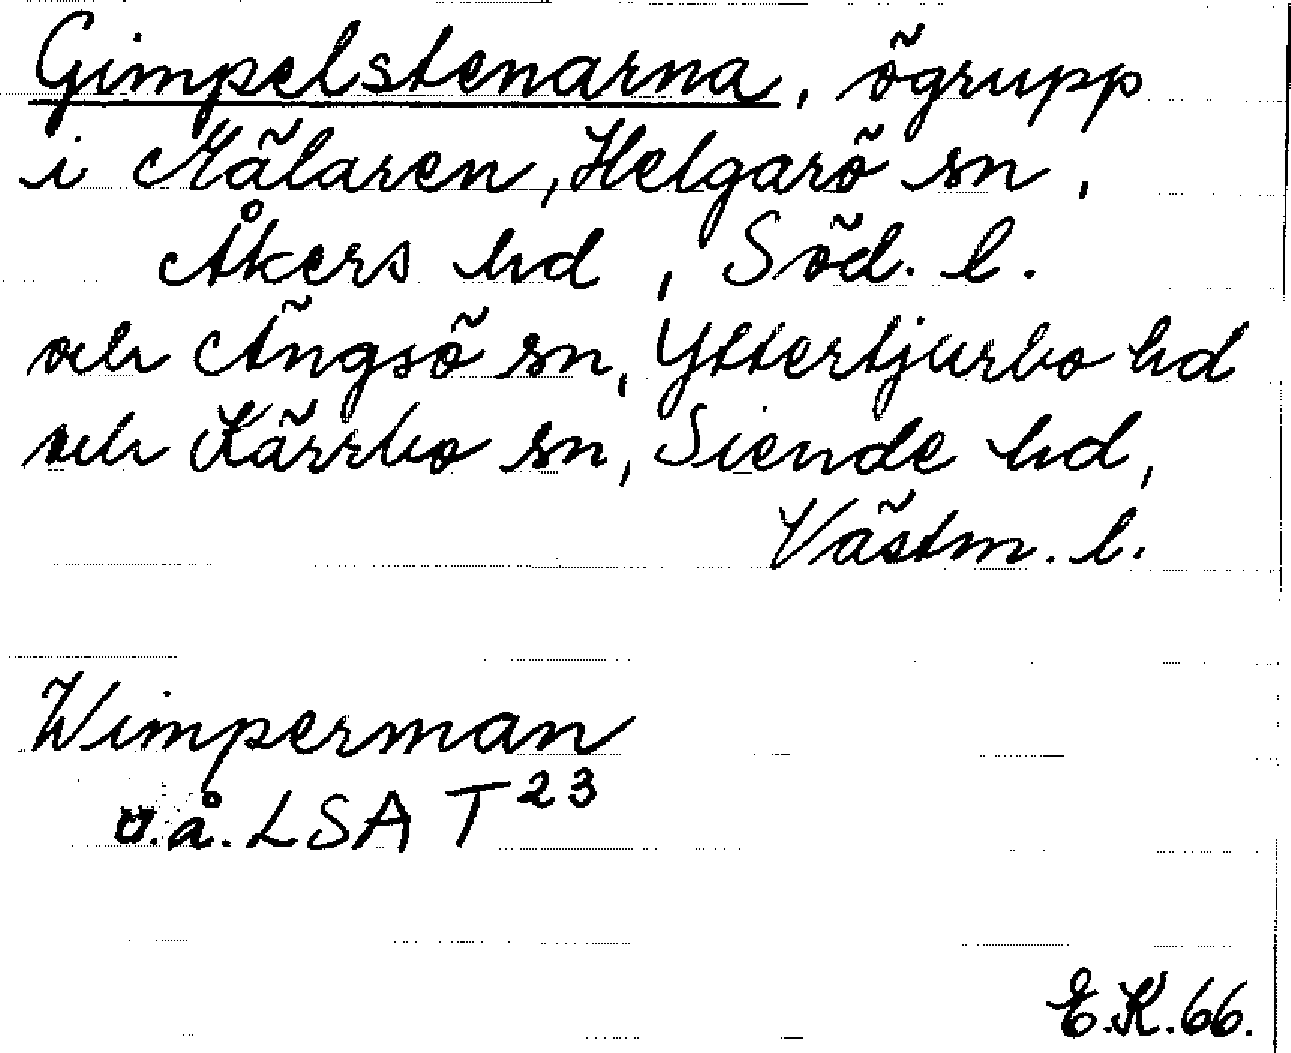 Gimpelstenarna, ögrupp
i Mälaren, Helgarö sn,
Åkers hd, Söd. l.
och Ängsö sn, Yttertjurbo hd
och Kärrbo sn, Siende hd,
Västm. l.
Wimperman
u.å. LSA T²³
E.K.66.